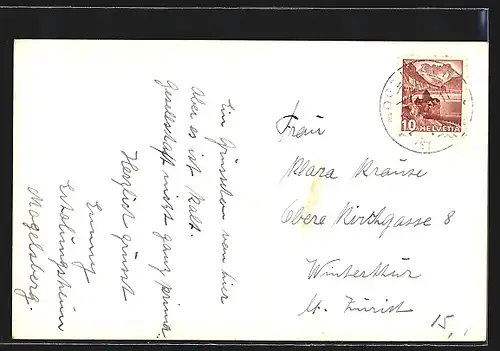 Ein Grüsschen von hier
Aber es ist kalt.
Gesellschaft nicht ganz prima.
Herzlich grüsst
Emmy
Erholungsheim
Mogelsberg.
Frau
Klara Krause
Obere Kirchgasse 8
Winterthur
Kt. Zürich
10 HELVETIA
15.